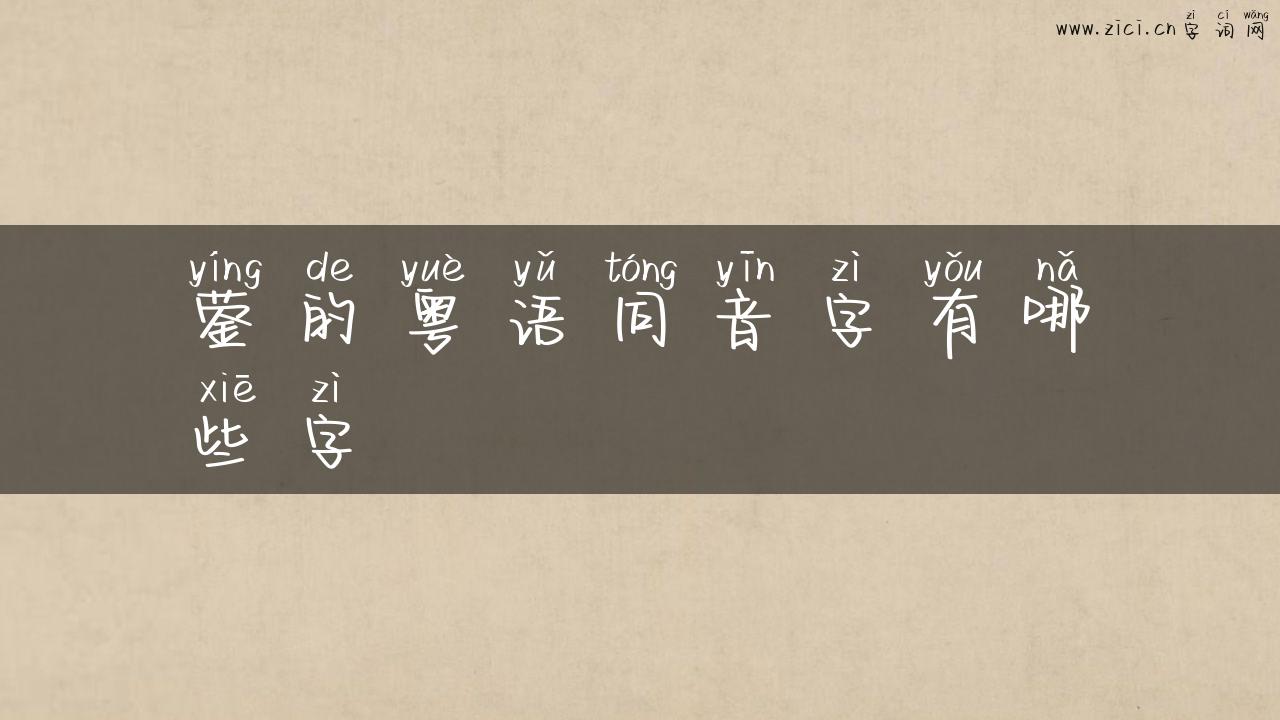 zì cí wǎng
www.zici.cn 字词网
yíng de yuè yǔ tóng yīn zì yǒu nǎ
蓥的粤语同音字有哪
xiē zì
些字